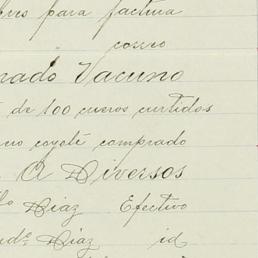 para factura
" correo
nado Vacuno
de 100 cueros curtidos
no coyote comprado
A Diversos
Diaz Efectivo
Diaz id